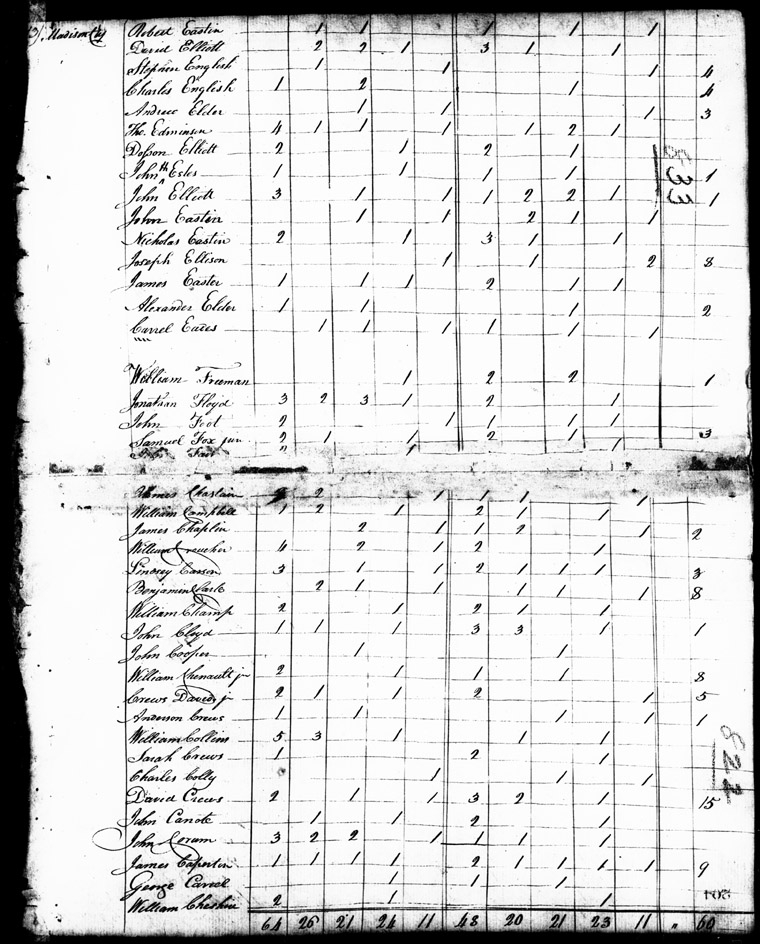 Madison Cty Robert Eastin 1 1 1 1 1
David Elliott 2 2 1 3 1 1
Stephen English 1 1 1 4
Charles English 1 2 1 4
Andrew Elder 1 1 1 3
Tho. Edminson 4 1 1 1 1 2 1
Dosson Elliott 2 1 2 1
John Estes 1 1 1 1 1
John Elliott 3 1 1 1 2 2 1 1
John Eastin 1 1 2 1 1
Nicholas Eastin 2 1 3 1 1
Joseph Ellison 1 1 2 8
James Easter 1 1 1 2 1 1
Alexander Elder 1 1 1 2
Carrel Eades 1 1 1 1 1 1
33
William Freeman 1 2 2 1
Jonathan Floyd 3 2 3 1 2 1
John Foot 2 1 1 1 1
Samuel Fox jun 2 1 1 2 1 3
Fair 1 1
Chastain 2 1 1 1 1
William Campbell 1 2 1 2 1 1
James Chaplin 2 1 1 2 1 2
William Croucher 4 2 1 2 1
Lindsey Carson 3 1 1 2 1 1 1 3
Benjamin 2 1 1 1 1 1 8
William Champ 2 1 2 1 1
John Cloyd 1 1 1 3 3 1 1
John Cooper 1 1
William Chenault jr 2 1 1 1 8
Crews David jr 2 1 1 2 1 5
Anderson Crews 1 1 1 1 1
William Collins 5 3 1 1 1
Sarah Crews 1 2 1
Charles Colly 1 1 1
David Crews 2 1 1 3 2 1 15
John Canote 1 1 2 1
John Coram 3 2 2 1 1 1 1
James Caperton 1 1 1 1 2 1 1 1 1 9
George Carrel 1 1 1
William Cheshire 2 1 1
822
64 26 21 24 11 48 20 21 23 11 " 60